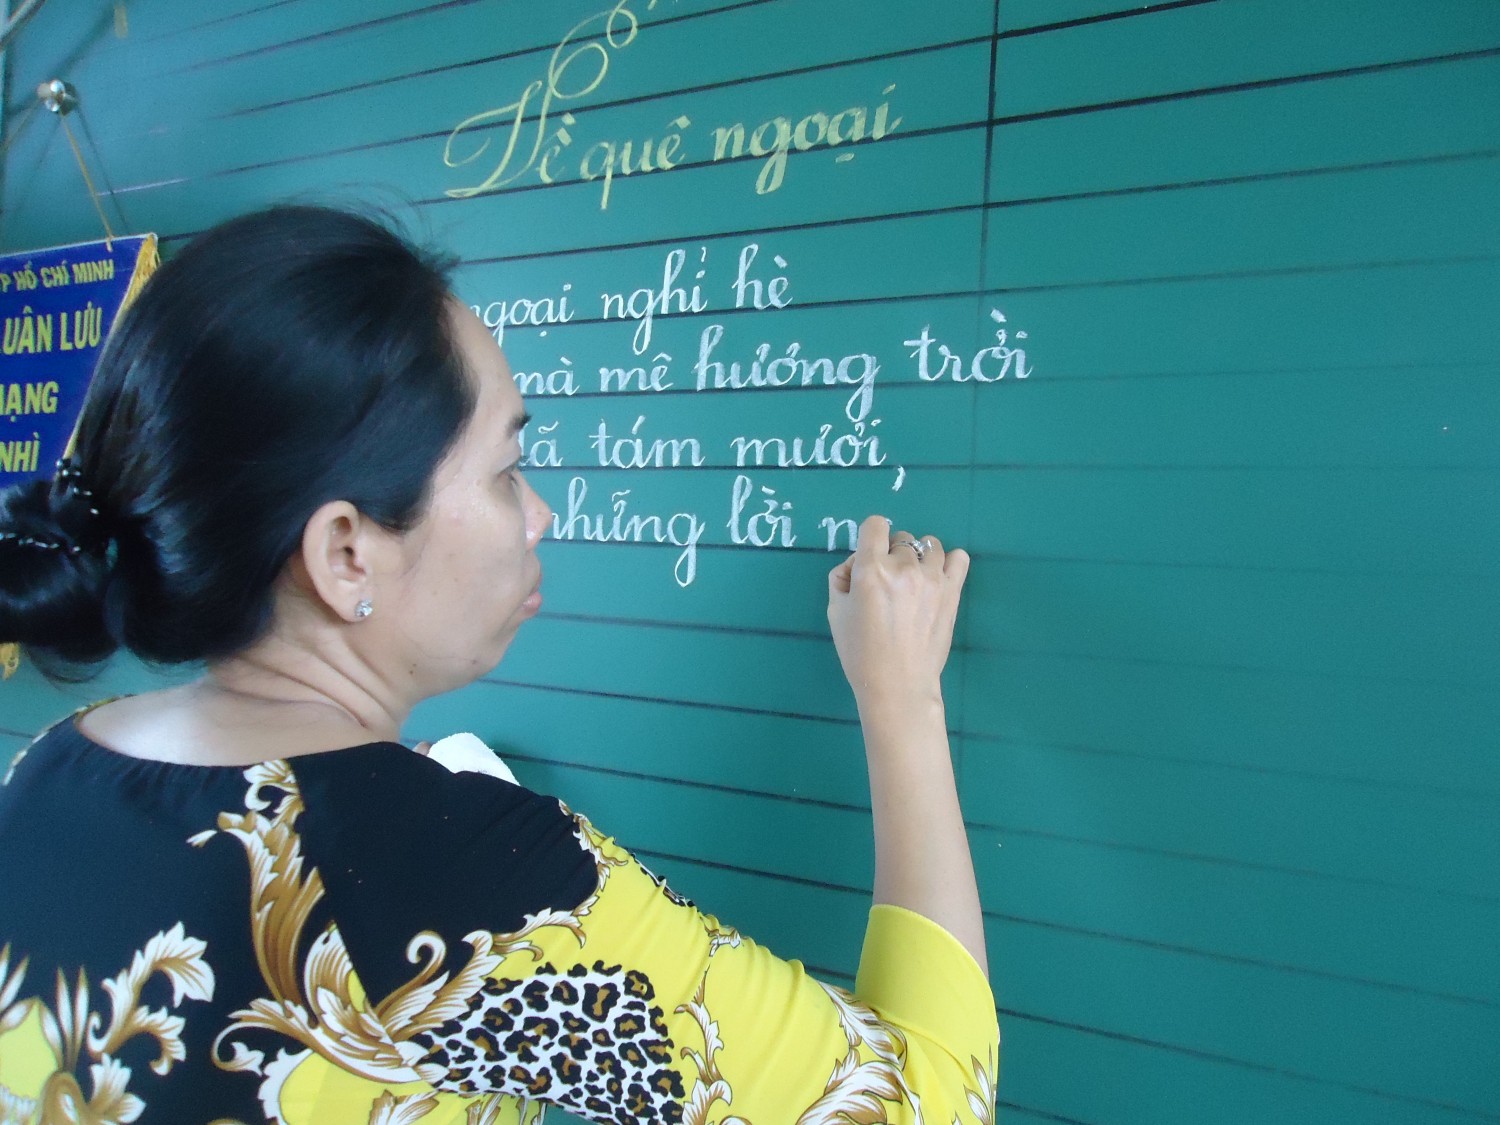 Về quê ngoại
ngoại nghỉ hè
mà mê hương trời
đã tám mươi,
những lời
HỒ CHÍ MINH
LUÂN LƯU
NHÌ